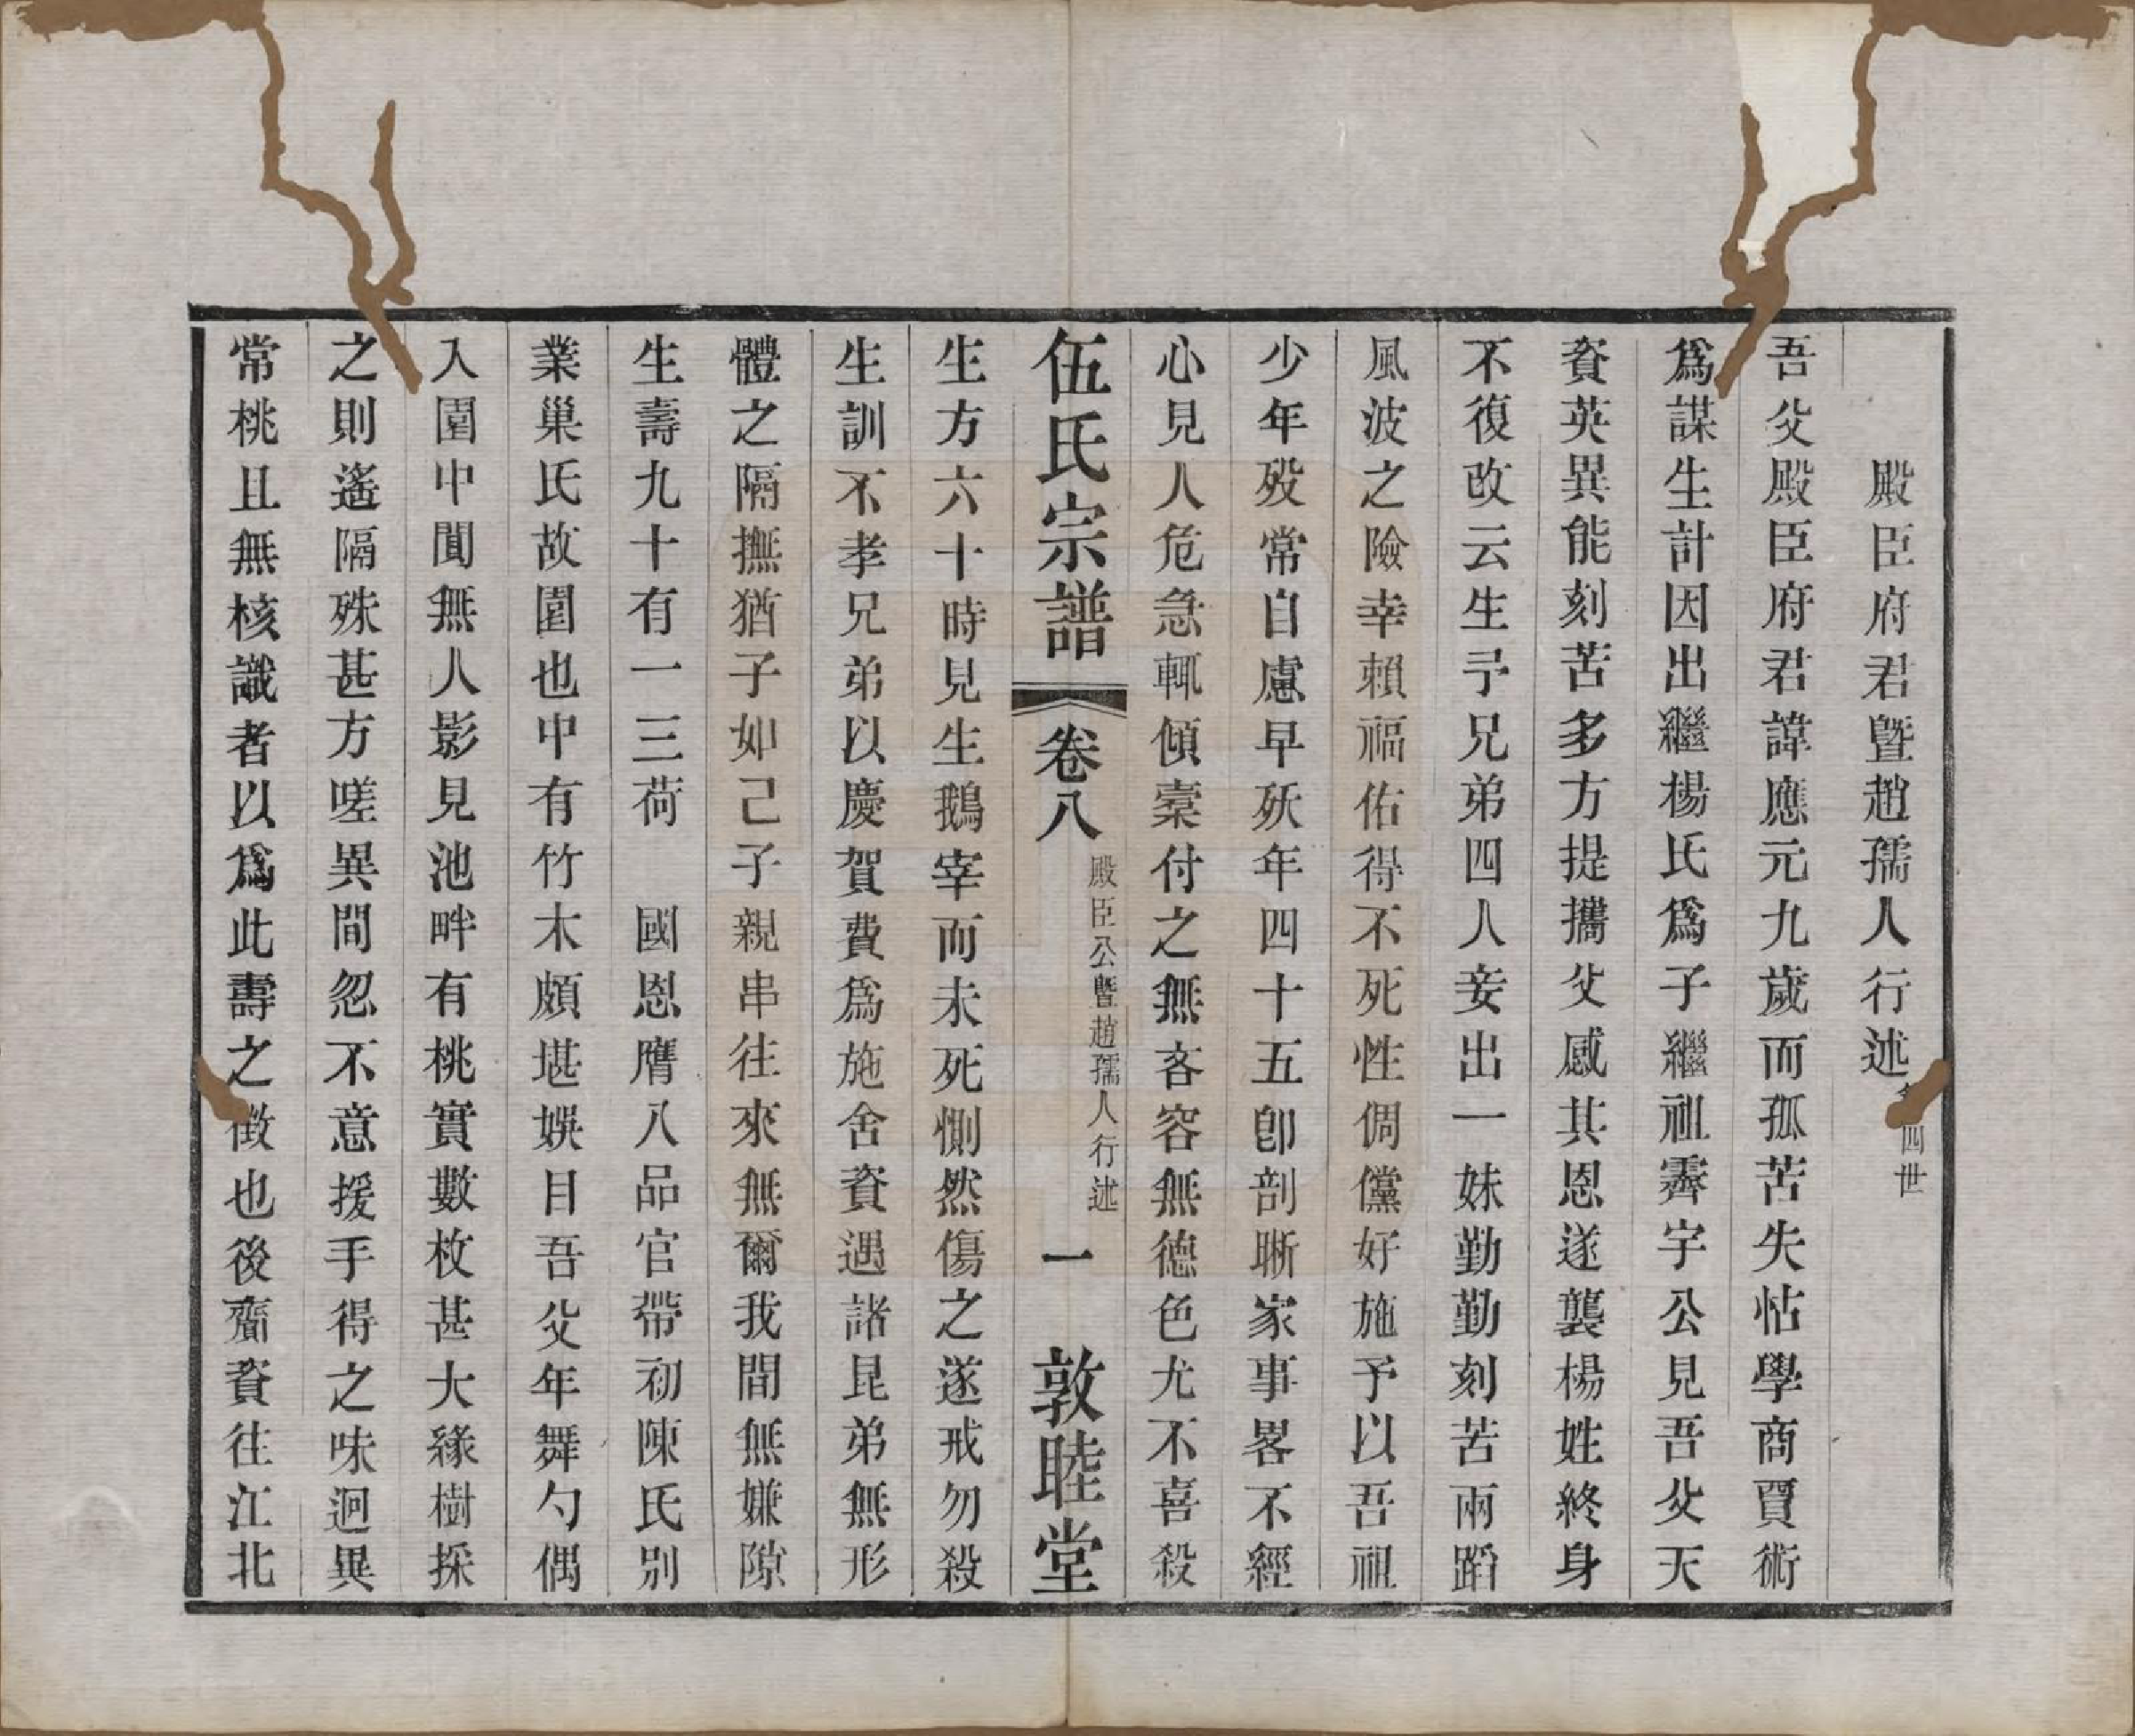 殿臣府君暨趙孺人行述 四世
吾父殿臣府君諱應元九歲而孤苦失怙學商賈術
爲謀生計因出繼楊氏爲子繼祖霽宇公見吾父天
資英異能刻苦多方提攜父感其恩遂襲楊姓終身
不復改云生予兄弟四人妾出一妹勤勤刻苦兩蹈
風波之險幸賴福佑得不死性倜儻好施予以吾祖
少年歿常自慮早殀年四十五卽剖晰家事畧不經
心見人危急輒傾橐付之無吝容無德色尤不喜殺
伍氏宗譜 卷八 殿臣公暨趙孺人行述 一 敦睦堂
生方六十時見生鵝宰而未死惻然傷之遂戒勿殺
生訓不孝兄弟以慶賀費爲施舍資遇諸昆弟無形
體之隔撫猶子如己子親串往來無爾我間無嫌隙
生壽九十有一三荷 國恩膺八品官帶初陳氏別
業巢氏故園也中有竹木頗堪娛目吾父年舞勺偶
入園中闃無人影見池畔有桃實數枚甚大緣樹採
之則遙隔殊甚方嗟異間忽不意援手得之味迥異
常桃且無核識者以爲此壽之徵也後齎資往江北